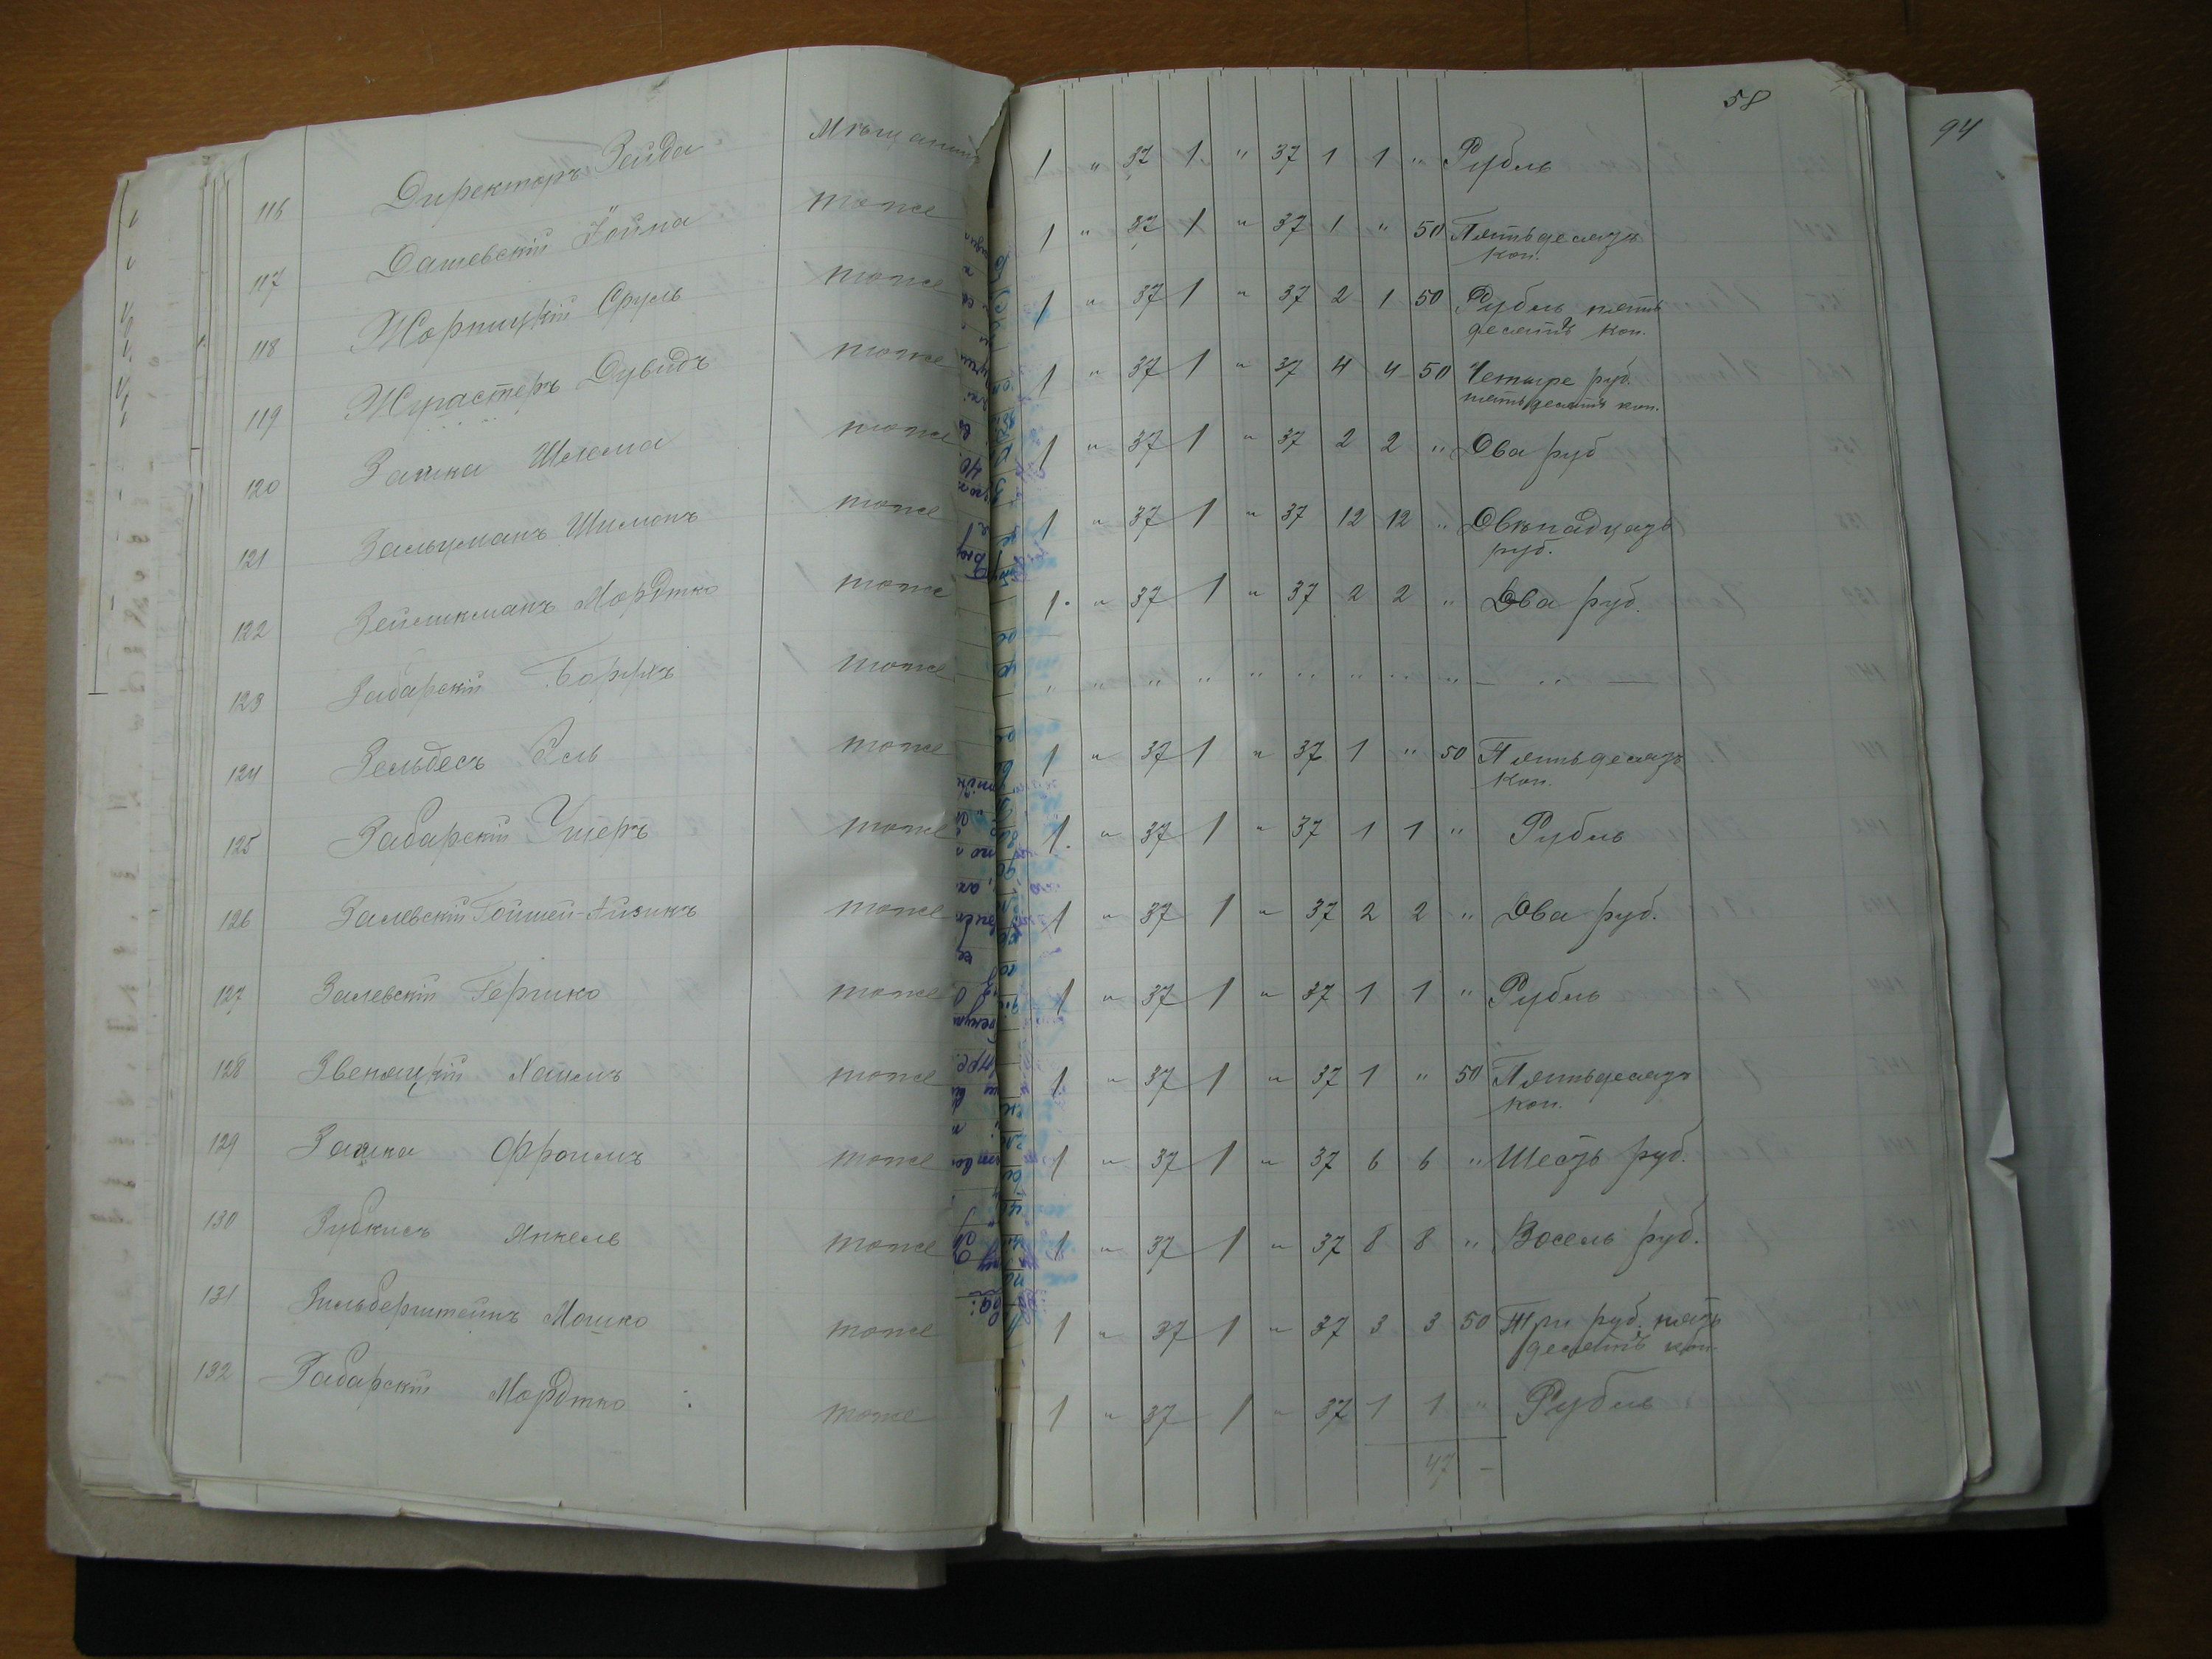 58
94
116 Директоръ Зейда Мѣщанинъ 1 " 37 1 " 37 1 1 " Рубль
117 Дашевскій Іойна тоже 1 " 37 1 " 37 1 " 50 Пятьдесятъ
коп.
118 Жорницкій Сруль тоже 1 " 37 1 " 37 2 1 50 Рубль пять
десятъ коп.
119 Дувидъ тоже 1 " 37 1 " 37 4 4 50 Четыре руб.
пятьдесятъ коп.
120 Зашка Шлема тоже 1 " 37 1 " 37 2 2 " Два руб
121 Зальцманъ Шимонъ тоже 1 " 37 1 " 37 12 12 " Двѣнадцать
руб.
122 Зейликманъ Мордтко тоже 1 " 37 1 " 37 2 2 " Два руб.
123 Забарскій Борухъ тоже " " " " " " " " " — " —
124 Зельдесъ Эль тоже 1 " 37 1 " 37 1 " 50 Пятьдесятъ
коп.
125 Забарскій Ушеръ тоже 1 " 37 1 " 37 1 1 " Рубль
126 Залевскій Гойшей-Айзикъ тоже 1 " 37 1 " 37 2 2 " Два руб.
127 Залевскій Гершко тоже 1 " 37 1 " 37 1 1 " Рубль
128 Звеняцкій Хаимъ тоже 1 " 37 1 " 37 1 " 50 Пятьдесятъ
коп.
129 Зашка Фроимъ тоже 1 " 37 1 " 37 6 6 " Шесть руб.
130 Зубкисъ Янкель тоже 1 " 37 1 " 37 8 8 " Восемь руб.
131 Зильберштейнъ Мошко тоже 1 " 37 1 " 37 3 3 50 Три руб. пять
десятъ коп.
132 Забарскій Мордтко тоже 1 " 37 1 " 37 1 1 " Рубль
47 —